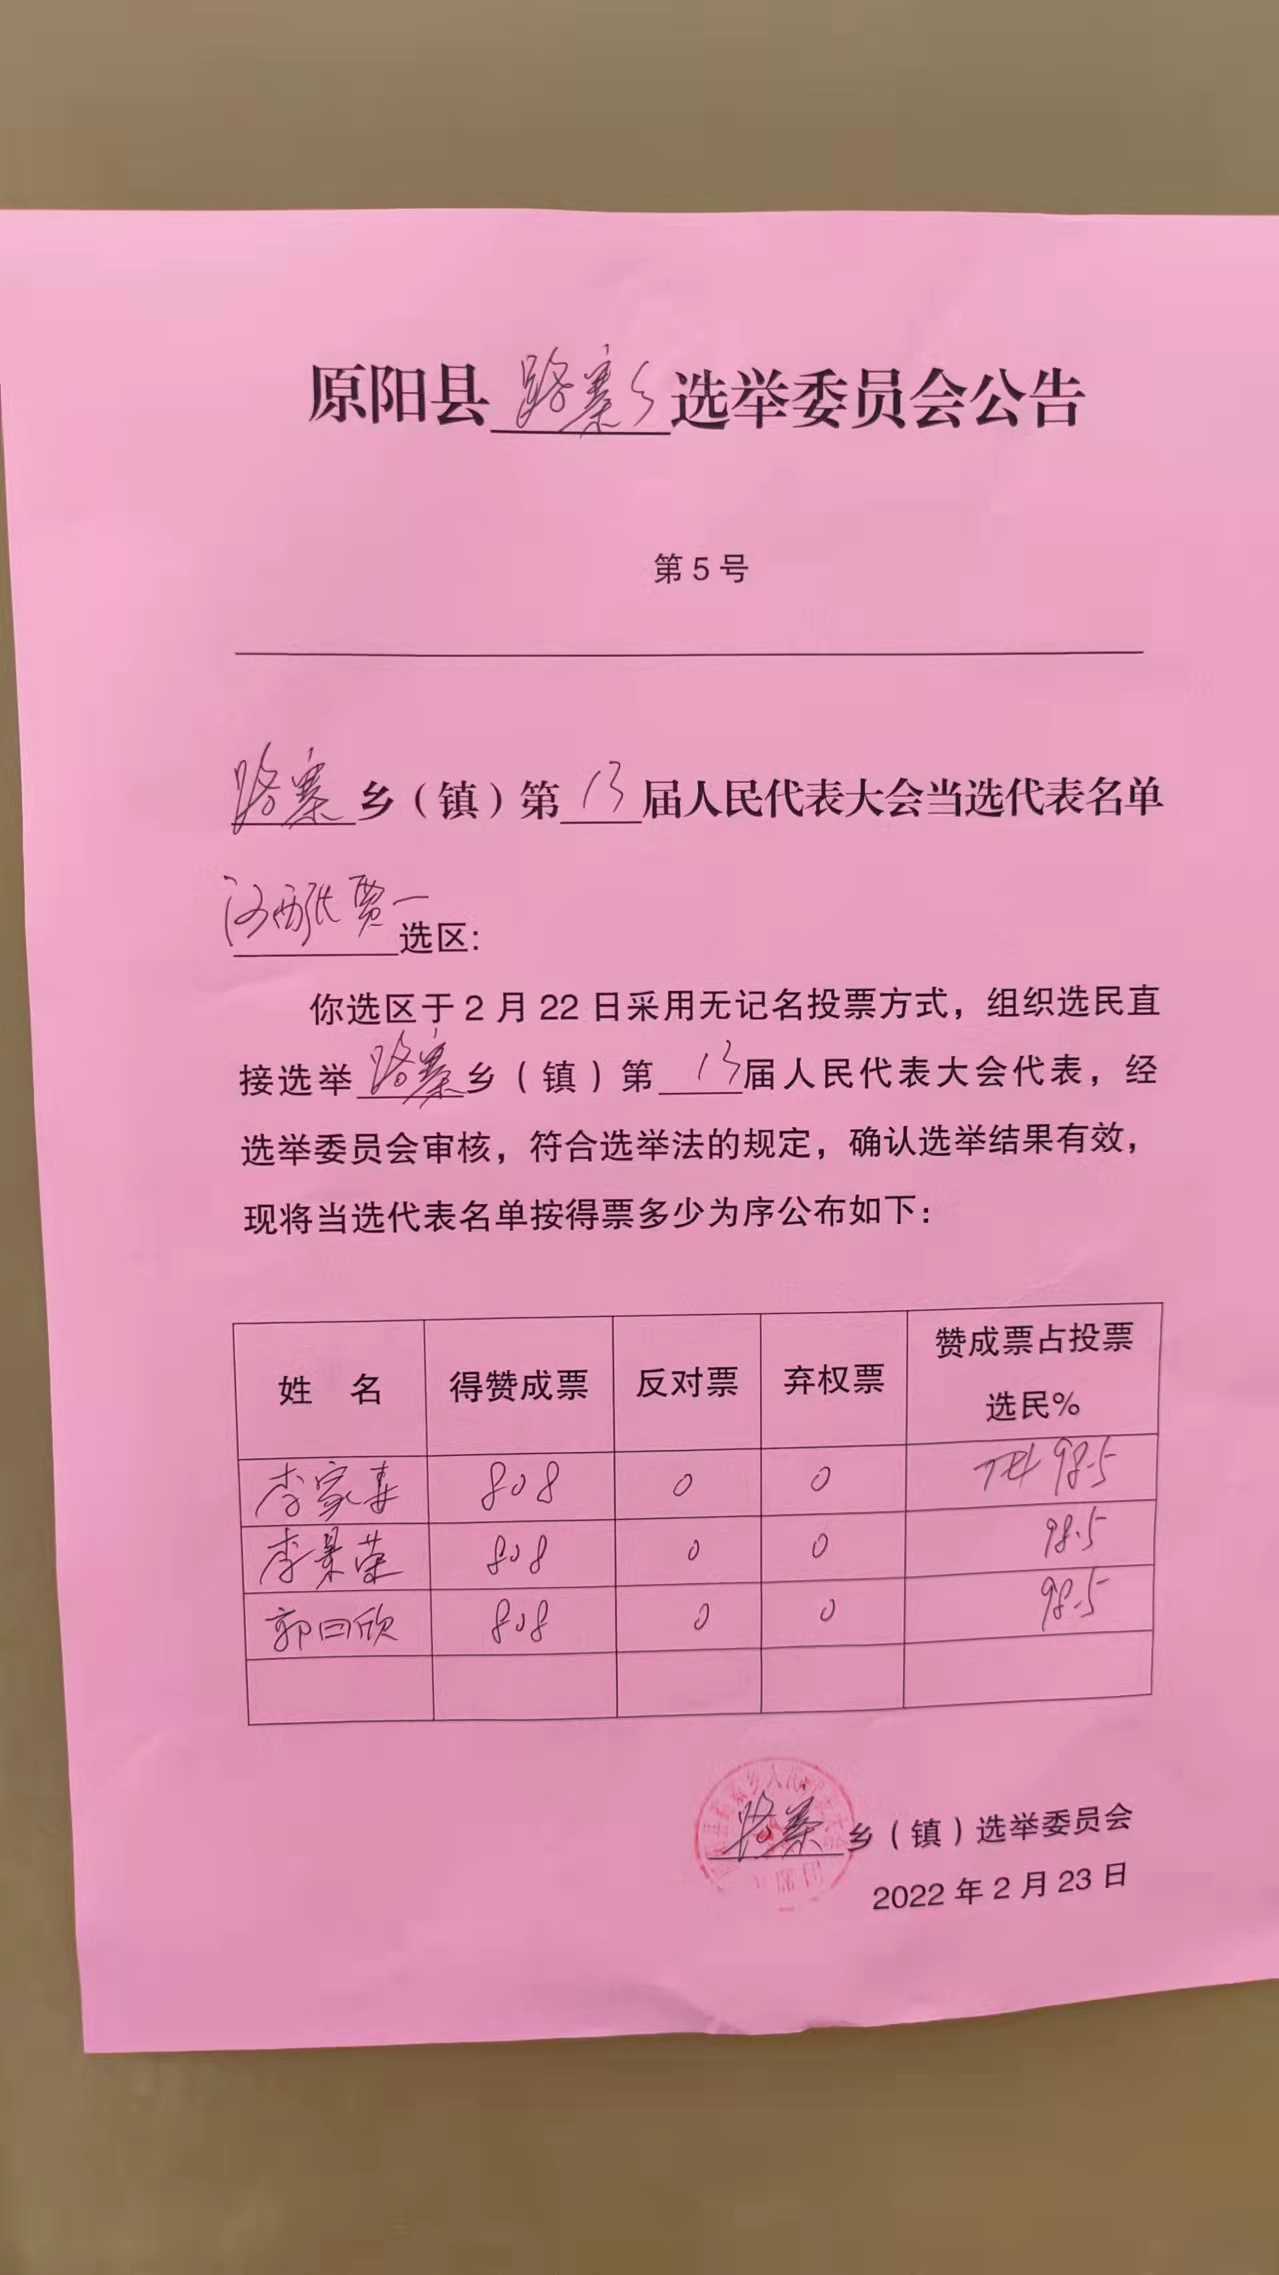 原阳县路寨乡选举委员会公告
第5号
路寨乡（镇）第13届人民代表大会当选代表名单
选区：
你选区于2月22日采用无记名投票方式，组织选民直
接选举路寨乡（镇）第13届人民代表大会代表，经
选举委员会审核，符合选举法的规定，确认选举结果有效，
现将当选代表名单按得票多少为序公布如下：
姓 名 得赞成票 反对票 弃权票 赞成票占投票
选民%
李家 808 0 0 98.5
李景荣 808 0 0 98.5
郭曰欣 808 0 0 98.5
路寨乡（镇）选举委员会
2022年2月23日